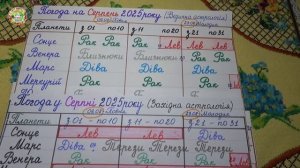 Погода на Серпень 2025року (Ведична астрологія)
Планети з 01 по10 з 11 по20 з 21 по31
Сонце Рак Рак Рак Лев Лев Лев
Венера Близнюки Близнюки Рак
Марс Діва Діва Діва
Меркурій Рак Рак Рак
Погода у Серпні 2025року (Західна астрологія)
Планети з 01 - по10 з 11 - по20 з 21 по31
Сонце Лев Лев Діва
Марс Діва Терези Терези Терези
Венера Рак Рак